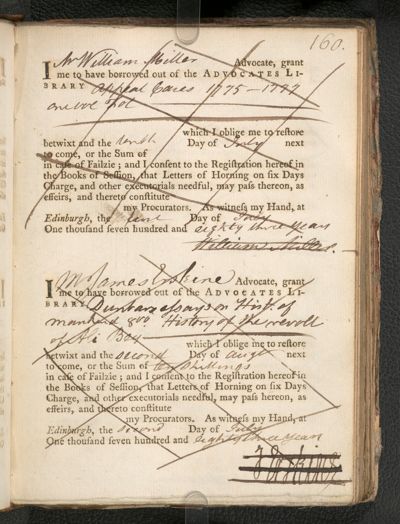 160.
I Mr William Miller Advocate, grant
me to have borrowed out of the ADVOCATES LI-
BRARY Appeal Cases 1775–1777
one vol fol
which I oblige me to restore
betwixt and the tenth Day of July next
to come, or the Sum of
in case of Failzie ; and I consent to the Registration hereof in
the Books of Session, that Letters of Horning on six Days
Charge, and other executorials needful, may pass thereon, as
effeirs, and thereto constitute
my Procurators. As witness my Hand, at
Edinburgh, the first Day of July
One thousand seven hundred and eighty three years
William Miller.
I Mr James Erskine Advocate, grant
me to have borrowed out of the ADVOCATES LI-
BRARY Dunbar essays on Hist. of
mankind 8vo History of the revolt
of Ali Bey
which I oblige me to restore
betwixt and the second Day of augt next
to come, or the Sum of ten shillings
in case of Failzie ; and I consent to the Registration hereof in
the Books of Session, that Letters of Horning on six Days
Charge, and other executorials needful, may pass hereon, as
effeirs, and thereto constitute
my Procurators. As witness my Hand, at
Edinburgh, the second Day of July
One thousand seven hundred and eighty three years
J Erskine